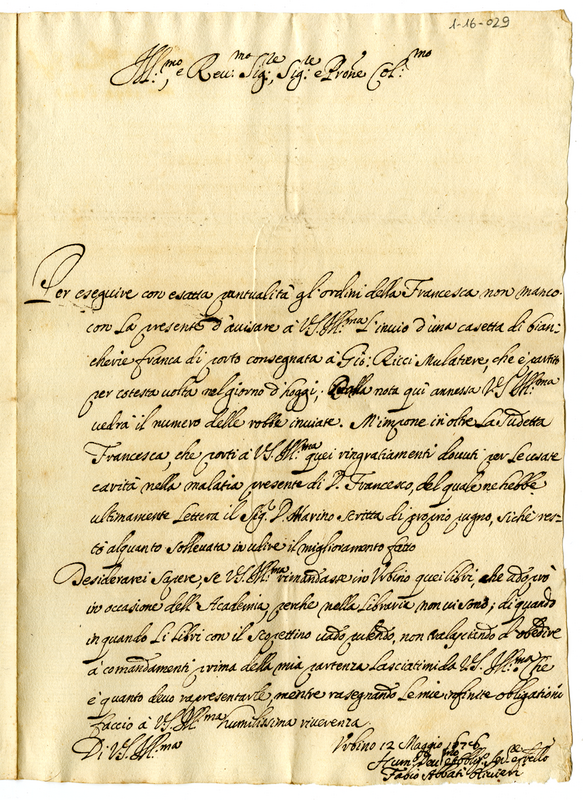 1-16-029
Ill.mo e Reu.mo Sig.re, Sig.re e Prone Col.mo
Per eseguire con esatta puntualità gl'ordini della Francesca non manco
con La presente d'auisare à V.S. Ill.ma L'inuio d'una casetta di bian-
cherie franca di porto consegnata à Gio: Ricci Mulatiere, che è partito
per cotesta uolta nel giorno d'hoggi; Dalla nota quì annessa V.S. Ill.ma
uedrà il numero delle robbe inuiate. M'impone in oltre La sudetta
Francesca, che porti à V.S. Ill.ma quei ringratiamenti douuti per Le usate
carità nella malatia presente di D. Francesco, del quale ne hebbe
ultimamente Lettera il Sig.r D. Marino scritta di proprio pugno, sì che res-
tò alquanto solleuata in udire il miglioramento fatto
Desiderarei sapere, se V.S. Ill.ma rimandasse in Vrbino quei libri, che adoprò
in occasione dell'Academia, perche nella Libraria non ui sono; di quando
in quando Li Libri con il scopettino uado pulendo, non tralasciando d'obedire
à comandamenti prima della mia partenza Lasciatimi da V.S. Ill.ma, che
è quanto deuo rapresentarle, mentre rasegnando Le mie infinite obligationi
faccio à V.S. Ill.ma humilissima riuerenza.
Di V.S. Ill.ma Vrbino 12 Maggio 1676
Hum.o Deu.mo et Obblig.mo Ser.re
Fabio Abbati Oliuieri